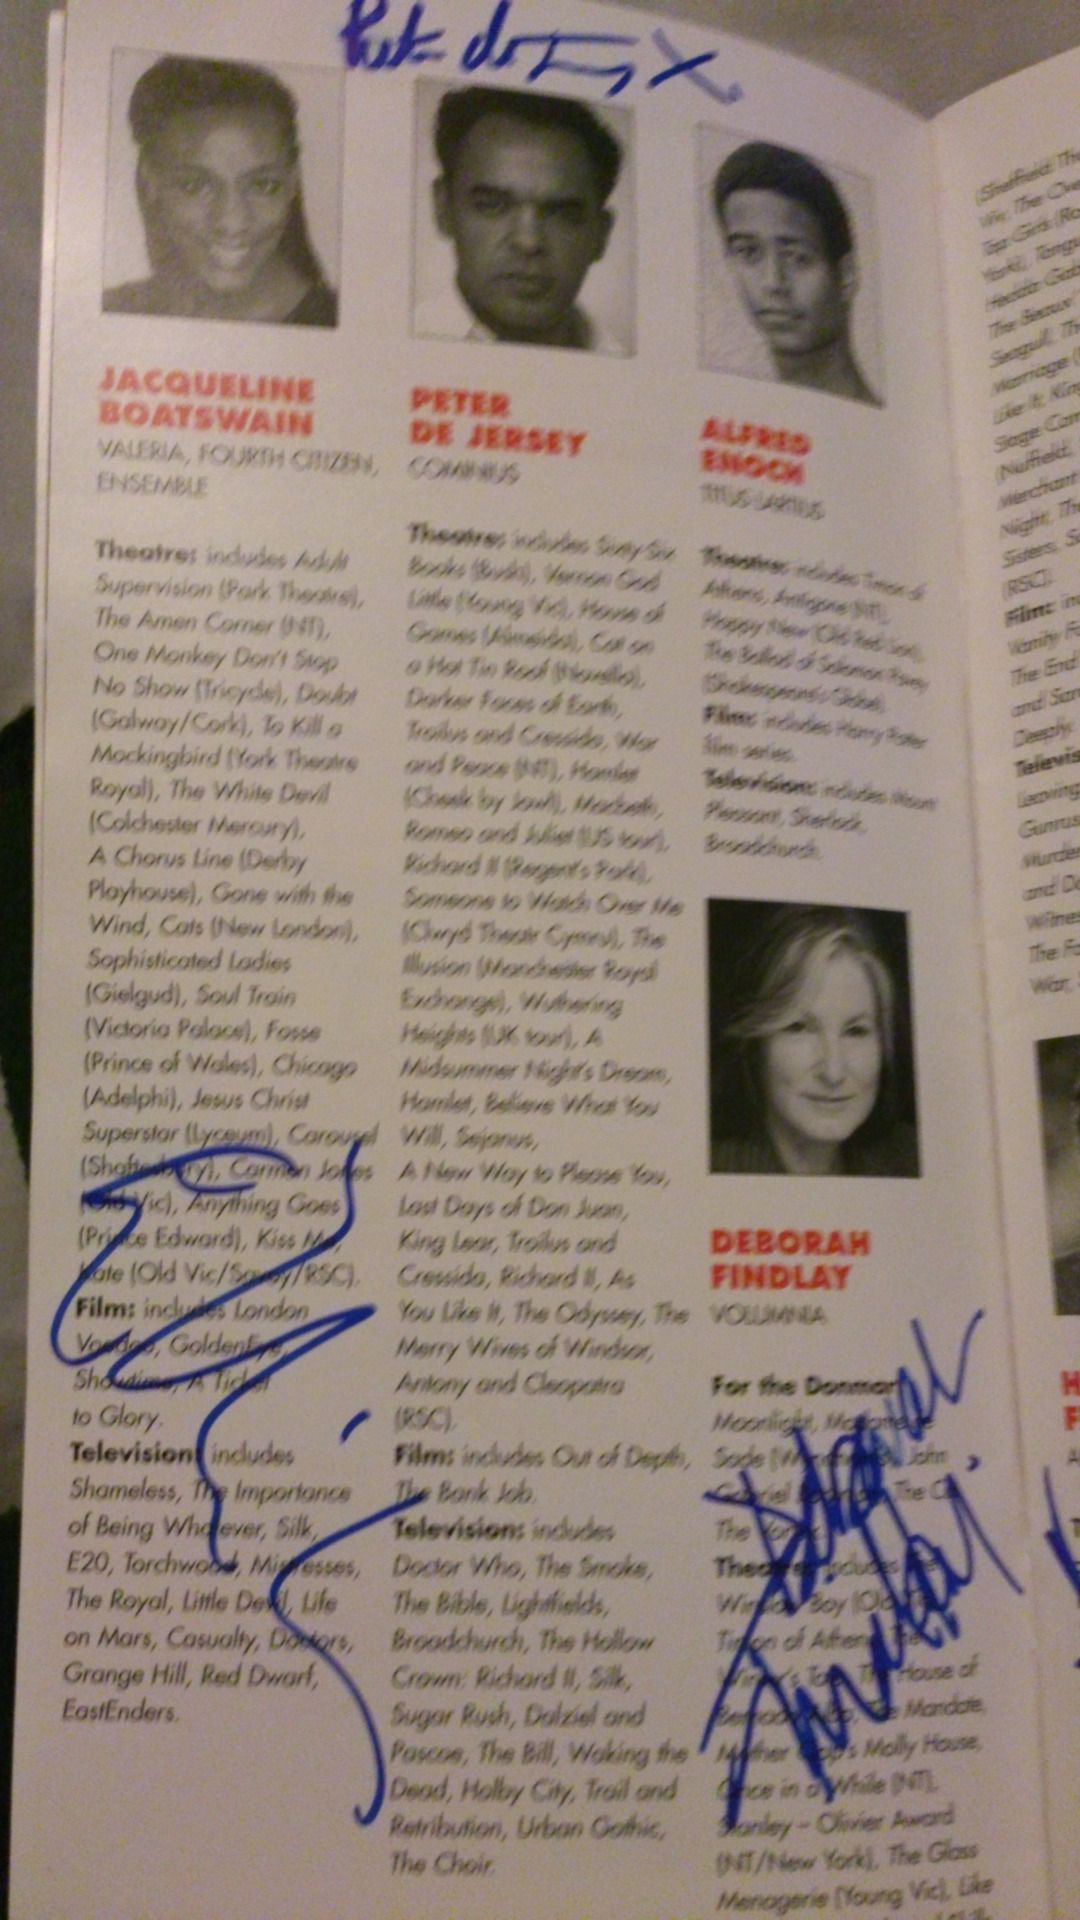 Peter de Jersey x
JACQUELINE
BOATSWAIN
VALERIA, FOURTH CITIZEN,
ENSEMBLE
Theatre: includes Adult
Supervision (Park Theatre),
The Amen Corner (NT),
One Monkey Don't Stop
No Show (Tricycle), Doubt
(Galway/Cork), To Kill a
Mockingbird (York Theatre
Royal), The White Devil
(Colchester Mercury),
A Chorus Line (Derby
Playhouse), Gone with the
Wind, Cats (New London),
Sophisticated Ladies
(Gielgud), Soul Train
(Victoria Palace), Fosse
(Prince of Wales), Chicago
(Adelphi), Jesus Christ
Superstar (Lyceum), Carousel
(Shaftesbury), Carmen Jones
(Old Vic), Anything Goes
(Prince Edward), Kiss Me,
Kate (Old Vic/Savoy/RSC).
Film: includes London
Voodoo, GoldenEye,
Showtime, A Ticket
to Glory.
Television: includes
Shameless, The Importance
of Being Whatever, Silk,
E20, Torchwood, Mistresses,
The Royal, Little Devil, Life
on Mars, Casualty, Doctors,
Grange Hill, Red Dwarf,
EastEnders.
PETER
DE JERSEY
COMINIUS
Theatre: includes Sixty-Six
Books (Bush), Vernon God
Little (Young Vic), House of
Games (Almeida), Cat on
a Hot Tin Roof (Novello),
Darker Faces of Earth,
Troilus and Cressida, War
and Peace (NT), Hamlet
(Cheek by Jowl), Macbeth,
Romeo and Juliet (US tour),
Richard II (Regent's Park),
Someone to Watch Over Me
(Clwyd Theatr Cymru), The
Illusion (Manchester Royal
Exchange), Wuthering
Heights (UK tour), A
Midsummer Night's Dream,
Hamlet, Believe What You
Will, Sejanus,
A New Way to Please You,
Last Days of Don Juan,
King Lear, Troilus and
Cressida, Richard II, As
You Like It, The Odyssey, The
Merry Wives of Windsor,
Antony and Cleopatra
(RSC).
Film: includes Out of Depth,
The Bank Job.
Television: includes
Doctor Who, The Smoke,
The Bible, Lightfields,
Broadchurch, The Hollow
Crown: Richard II, Silk,
Sugar Rush, Dalziel and
Pascoe, The Bill, Waking the
Dead, Holby City, Trail and
Retribution, Urban Gothic,
The Choir.
ALFRED
ENOCH
TITUS LARTIUS
Theatre: includes Timon of
Athens, Antigone (NT),
Happy New (Old Red Lion),
The Ballad of Salomon Pavey
(Shakespeare's Globe).
Film: includes Harry Potter
film series.
Television: includes Mount
Pleasant, Sherlock,
Broadchurch.
DEBORAH
FINDLAY
VOLUMNIA
For the Donmar:
Moonlight, Madame de
Sade (Wyndham's), John
Gabriel Borkman, The Cut,
The Vortex.
Theatre: includes The
Winslow Boy (Old Vic),
Timon of Athens, The
Winter's Tale, The House of
Bernarda Alba, The Mandate,
Mother Clap's Molly House,
Once in a While (NT),
Stanley – Olivier Award
(NT/New York), The Glass
Menagerie (Young Vic), Like
Deborah
Findlay
(Sheffield
Vic, The
Top Girls
York),
Hedda
The Beaux'
Seagull,
Marriage
Like It,
Stage
(Nuffield,
Merchant
Night, The
Sisters,
(RSC).
Film:
Vanity
The End
and
Deeply.
Leaving
Murder
and
The
War,